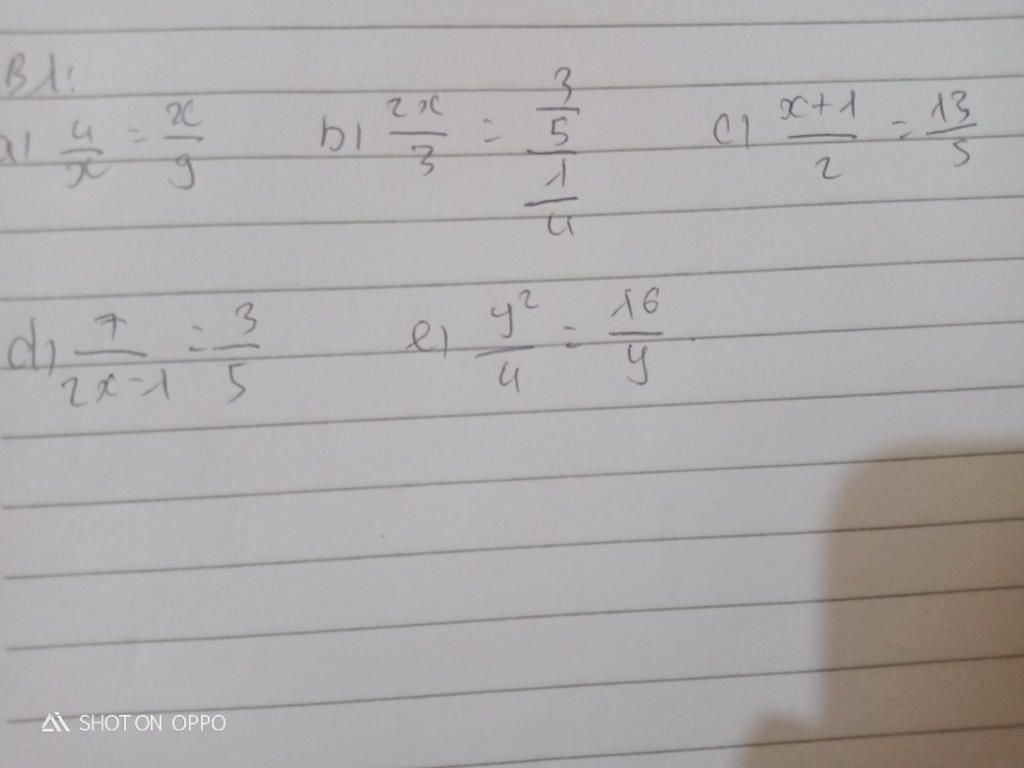 B1:
a) 4/x = x/9 b) 2x/3 = (3/5)/(1/4) c) x+1/2 = 13/5
d) 7/2x-1 = 3/5 e) y²/4 = 16/y
SHOT ON OPPO